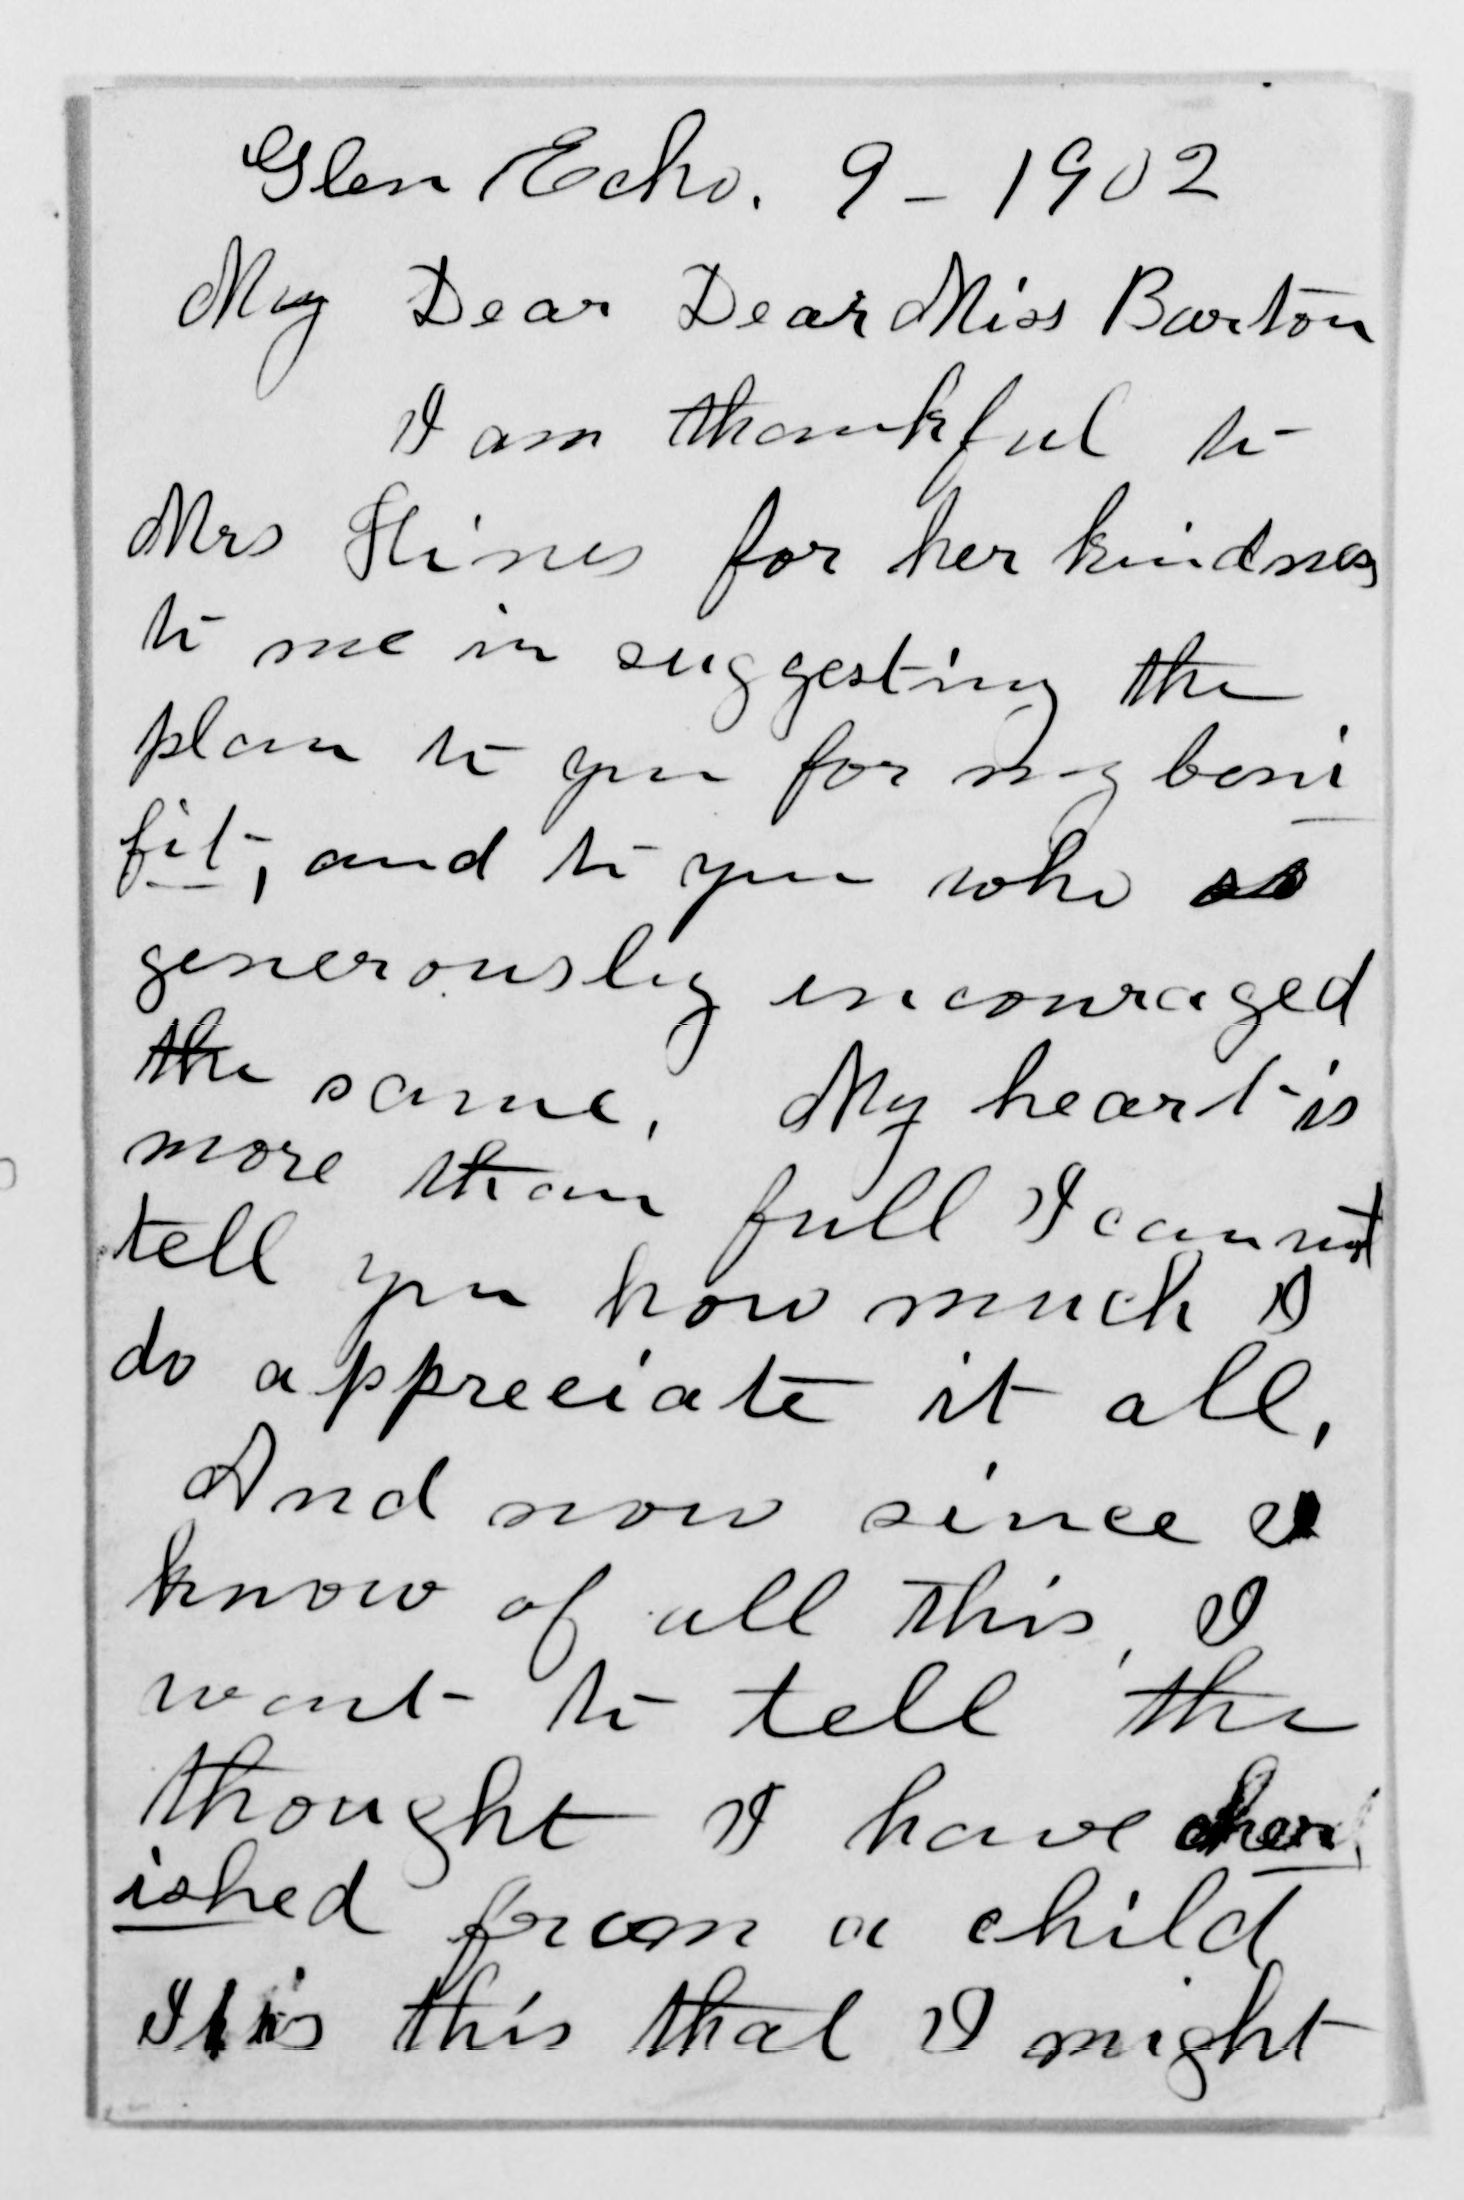 Glen Echo. 9 - 1902
My Dear Dear Miss Barton
I am thankful to
Mrs Hines for her kindness
to me in suggesting the
plan to you for my beni
fit, and to you who so
generously incouraged
the same. My heart is
more than full I cannot
tell you how much I
do appreciate it all.
And now since I
know of all this, I
want to tell the
thought I have cher
ished from a child
It is this that I might